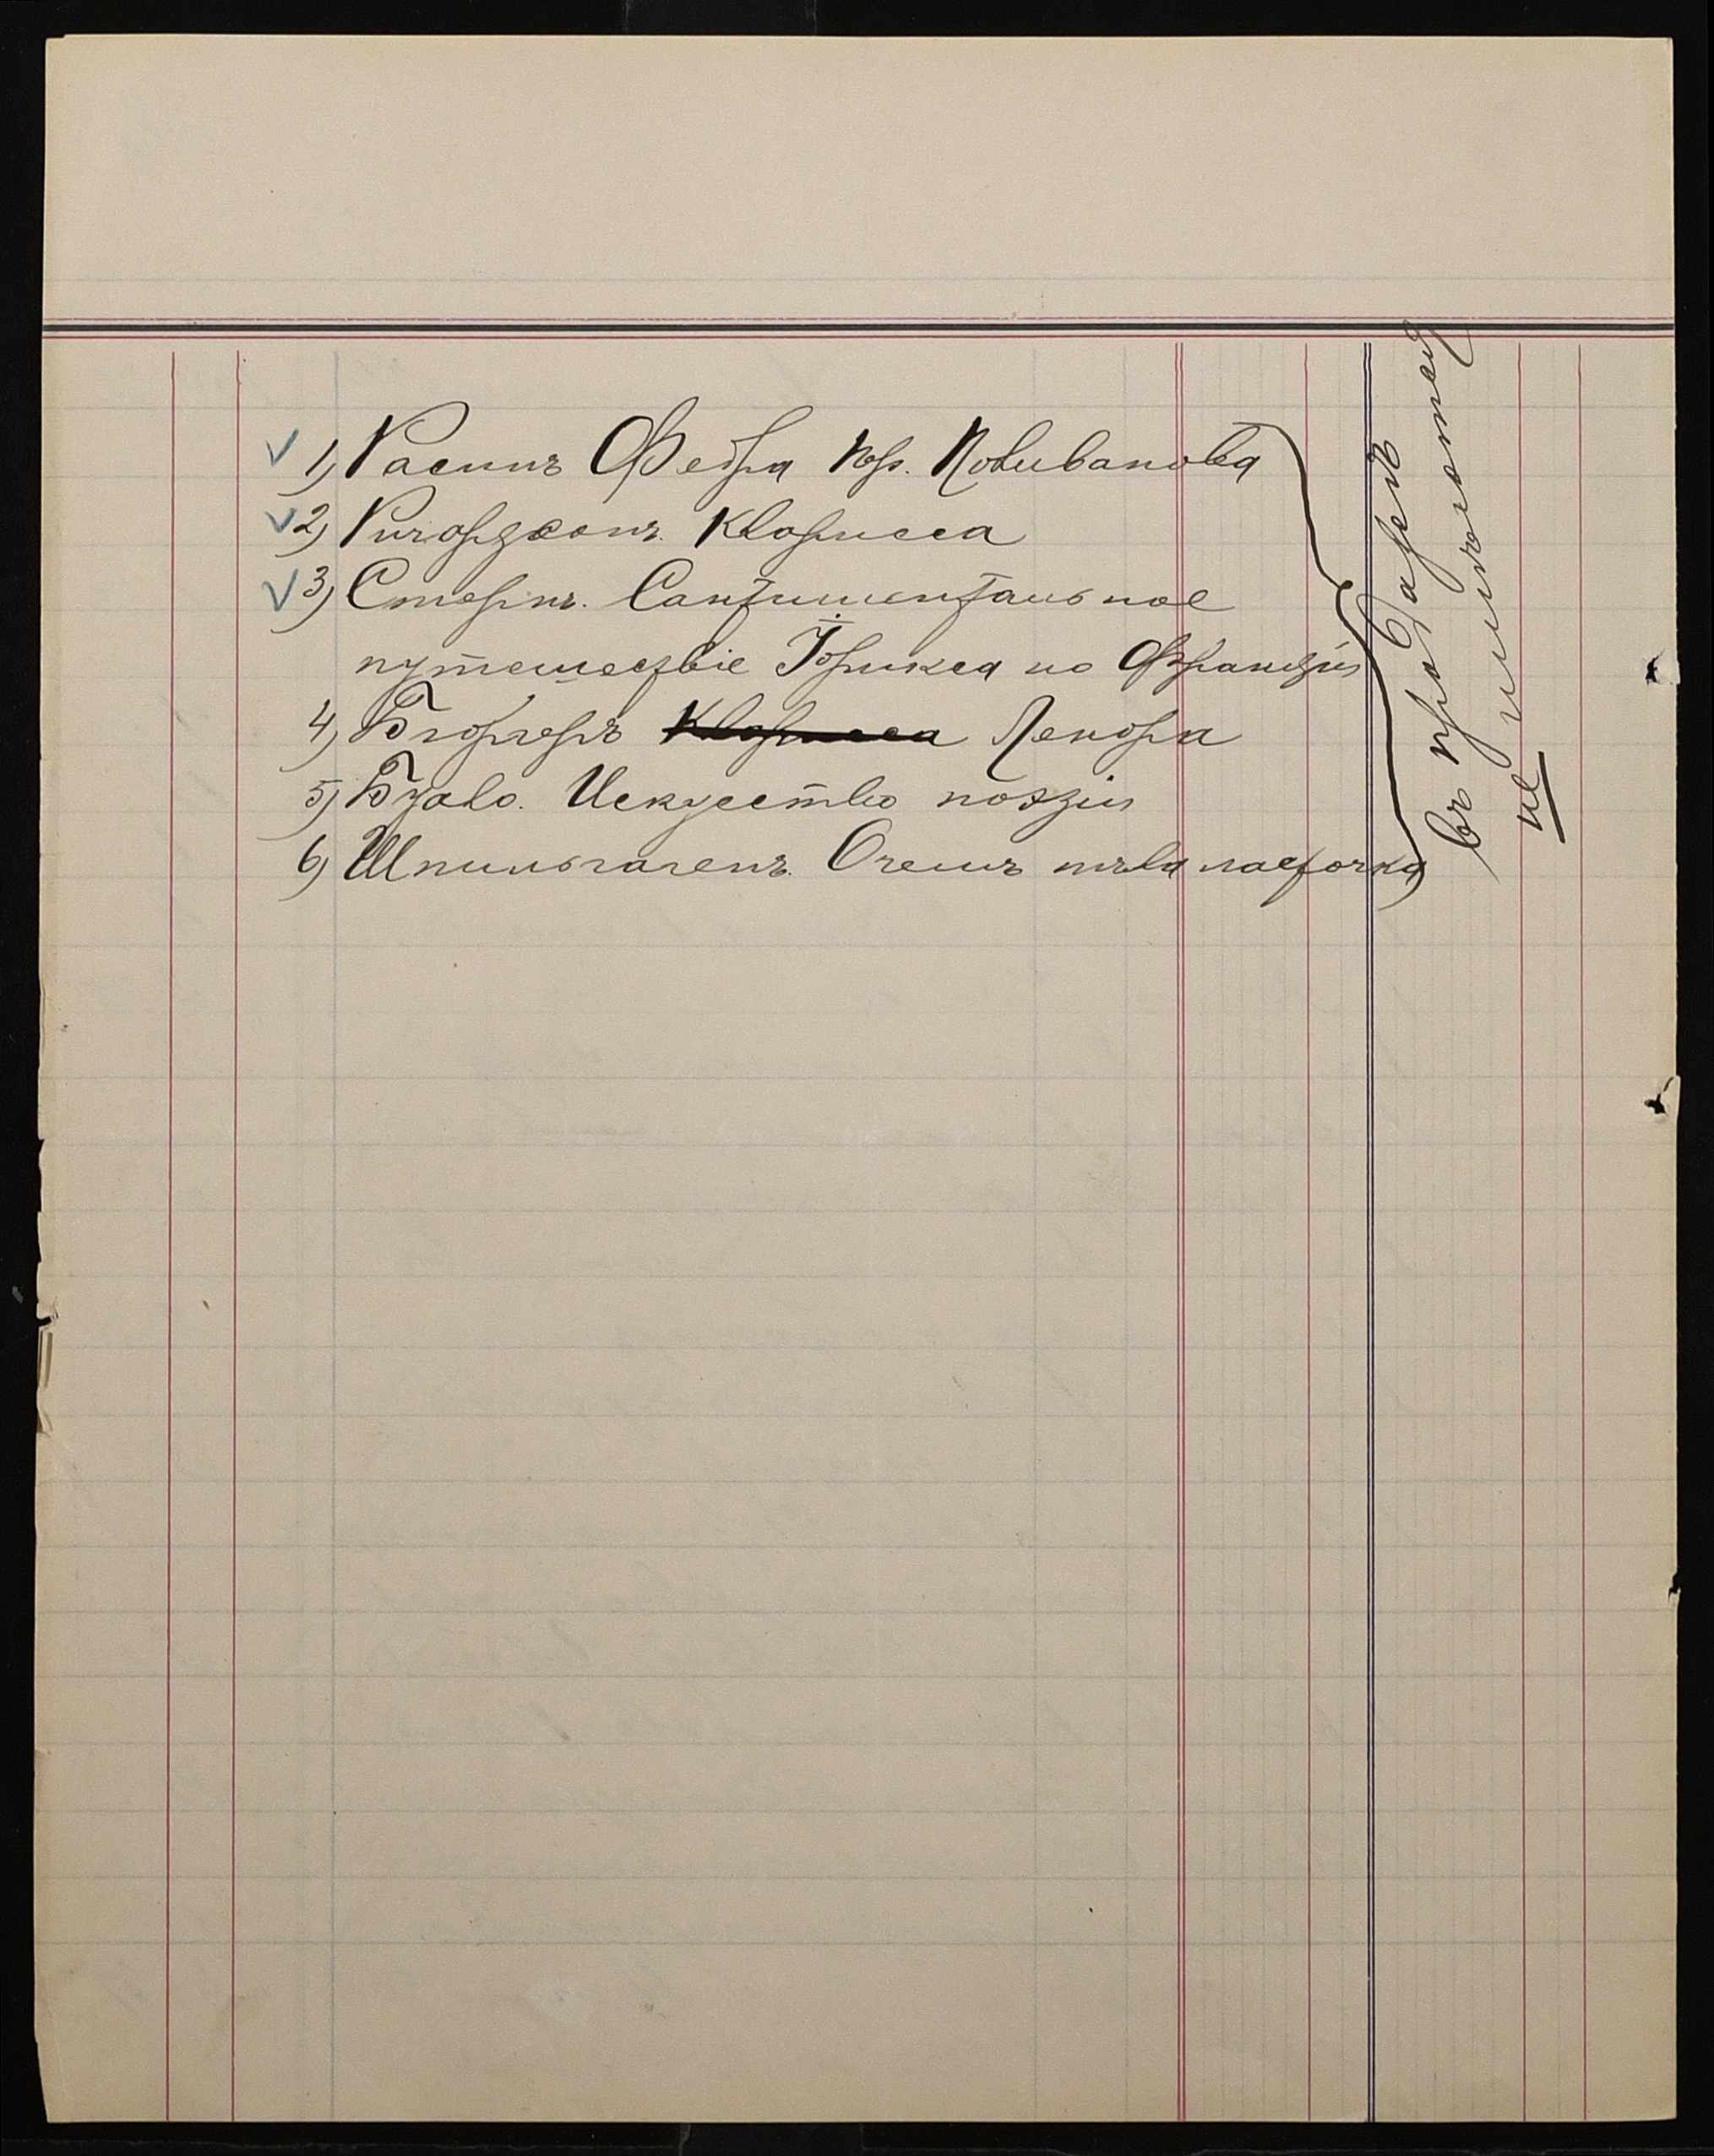 ✓ 1) Расинъ Федра пер. Поливанова
✓ 2) Ричардсонъ. Кларисса
✓ 3) Стернъ. Сантиментальное
путешествіе Іорика по Франціи
4) Бюргеръ Кларисса Ленора
5) Буало. Искусство поэзіи
6) Шпильгагенъ. О чемъ пѣла ласточка
въ прод
не